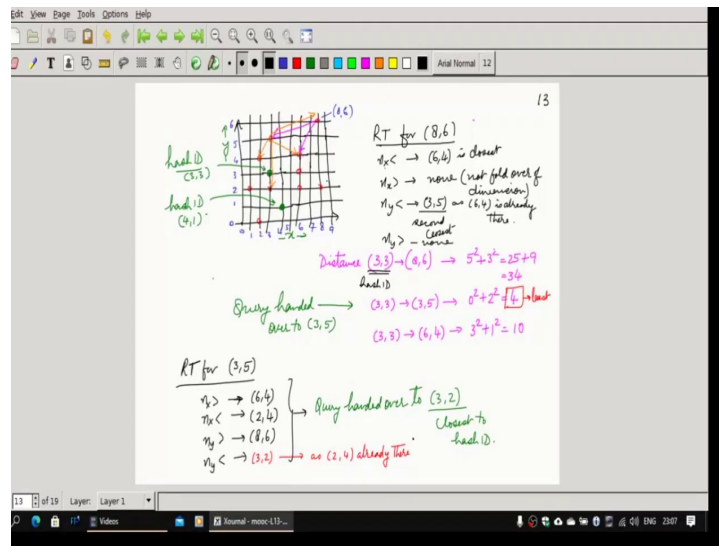 Edit View Page Tools Options Help
T Arial Normal 12
13
(8,6)
6
5
4
3
2
1
0
y
0 1 2 3 4 5 6 7 8 9
x →
hash ID
(3,3)
hash ID
(4,1)
RT for (8,6)
nx< → (6,4) is closest
nx> → none (not fold over of
dimension)
ny< → (3,5) as (6,4) is already
there.
second
closest
ny> - none
Distance (3,3) → (8,6) → 5²+3² = 25+9
= 34
hash ID
Query handed
over to (3,5)
(3,3) → (3,5) → 0²+2² = 4 → least
(3,3) → (6,4) → 3²+1² = 10
RT for (3,5)
nx> → (6,4)
nx< → (2,4)
ny> → (8,6)
ny< → (3,2) → as (2,4) already there
→ Query handed over to (3,2)
closest to
hash ID.
13 of 19 Layer: Layer 1
Videos Xournal - mooc-L13-... ENG 23:07